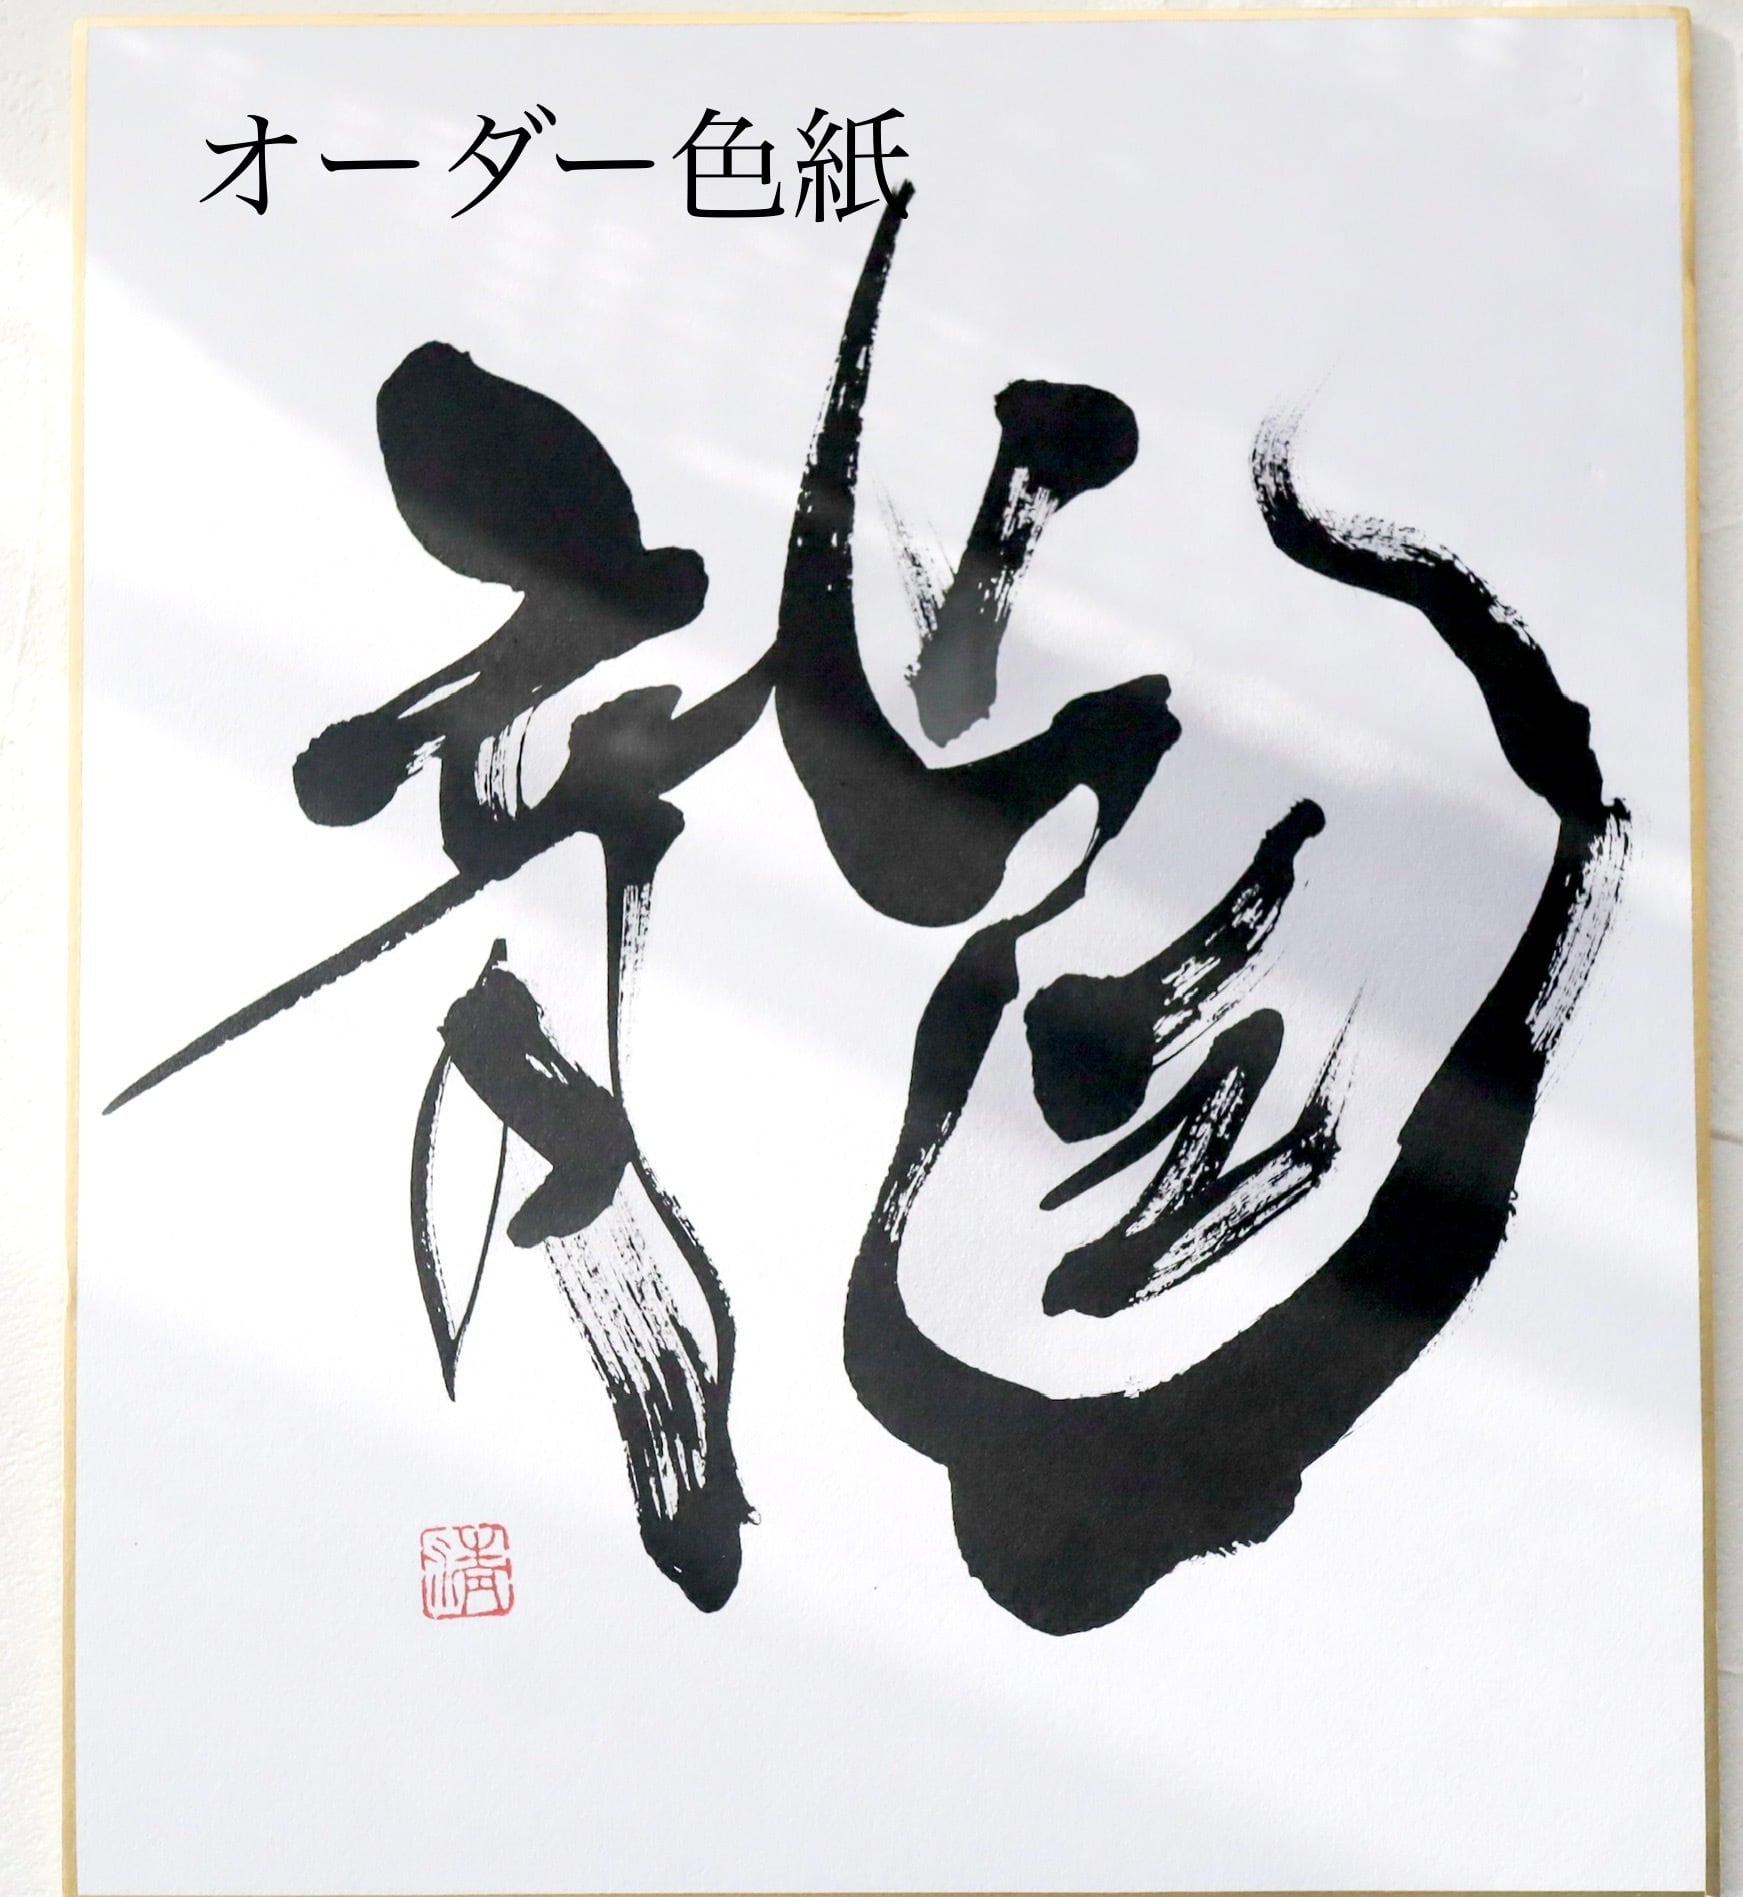 オーダー色紙
龍